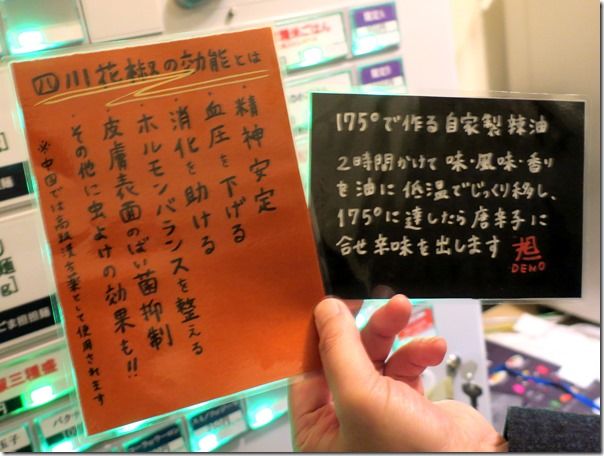 四川花椒の効能とは
・精神安定
・血圧を下げる
・消化を助ける
・ホルモンバランスを整える
・皮膚表面のばい菌抑制
・その他に虫よけの効果も!!
※中国では高級漢方薬として使用されます
175°で作る自家製辣油
2時間かけて味・風味・香り
を油に低温でじっくり移し、
175°に達したら唐辛子に
合せ辛味を出します
旭
DENO
限定A
限定B
ごま担担麺
三種盛
玉子
パクチ